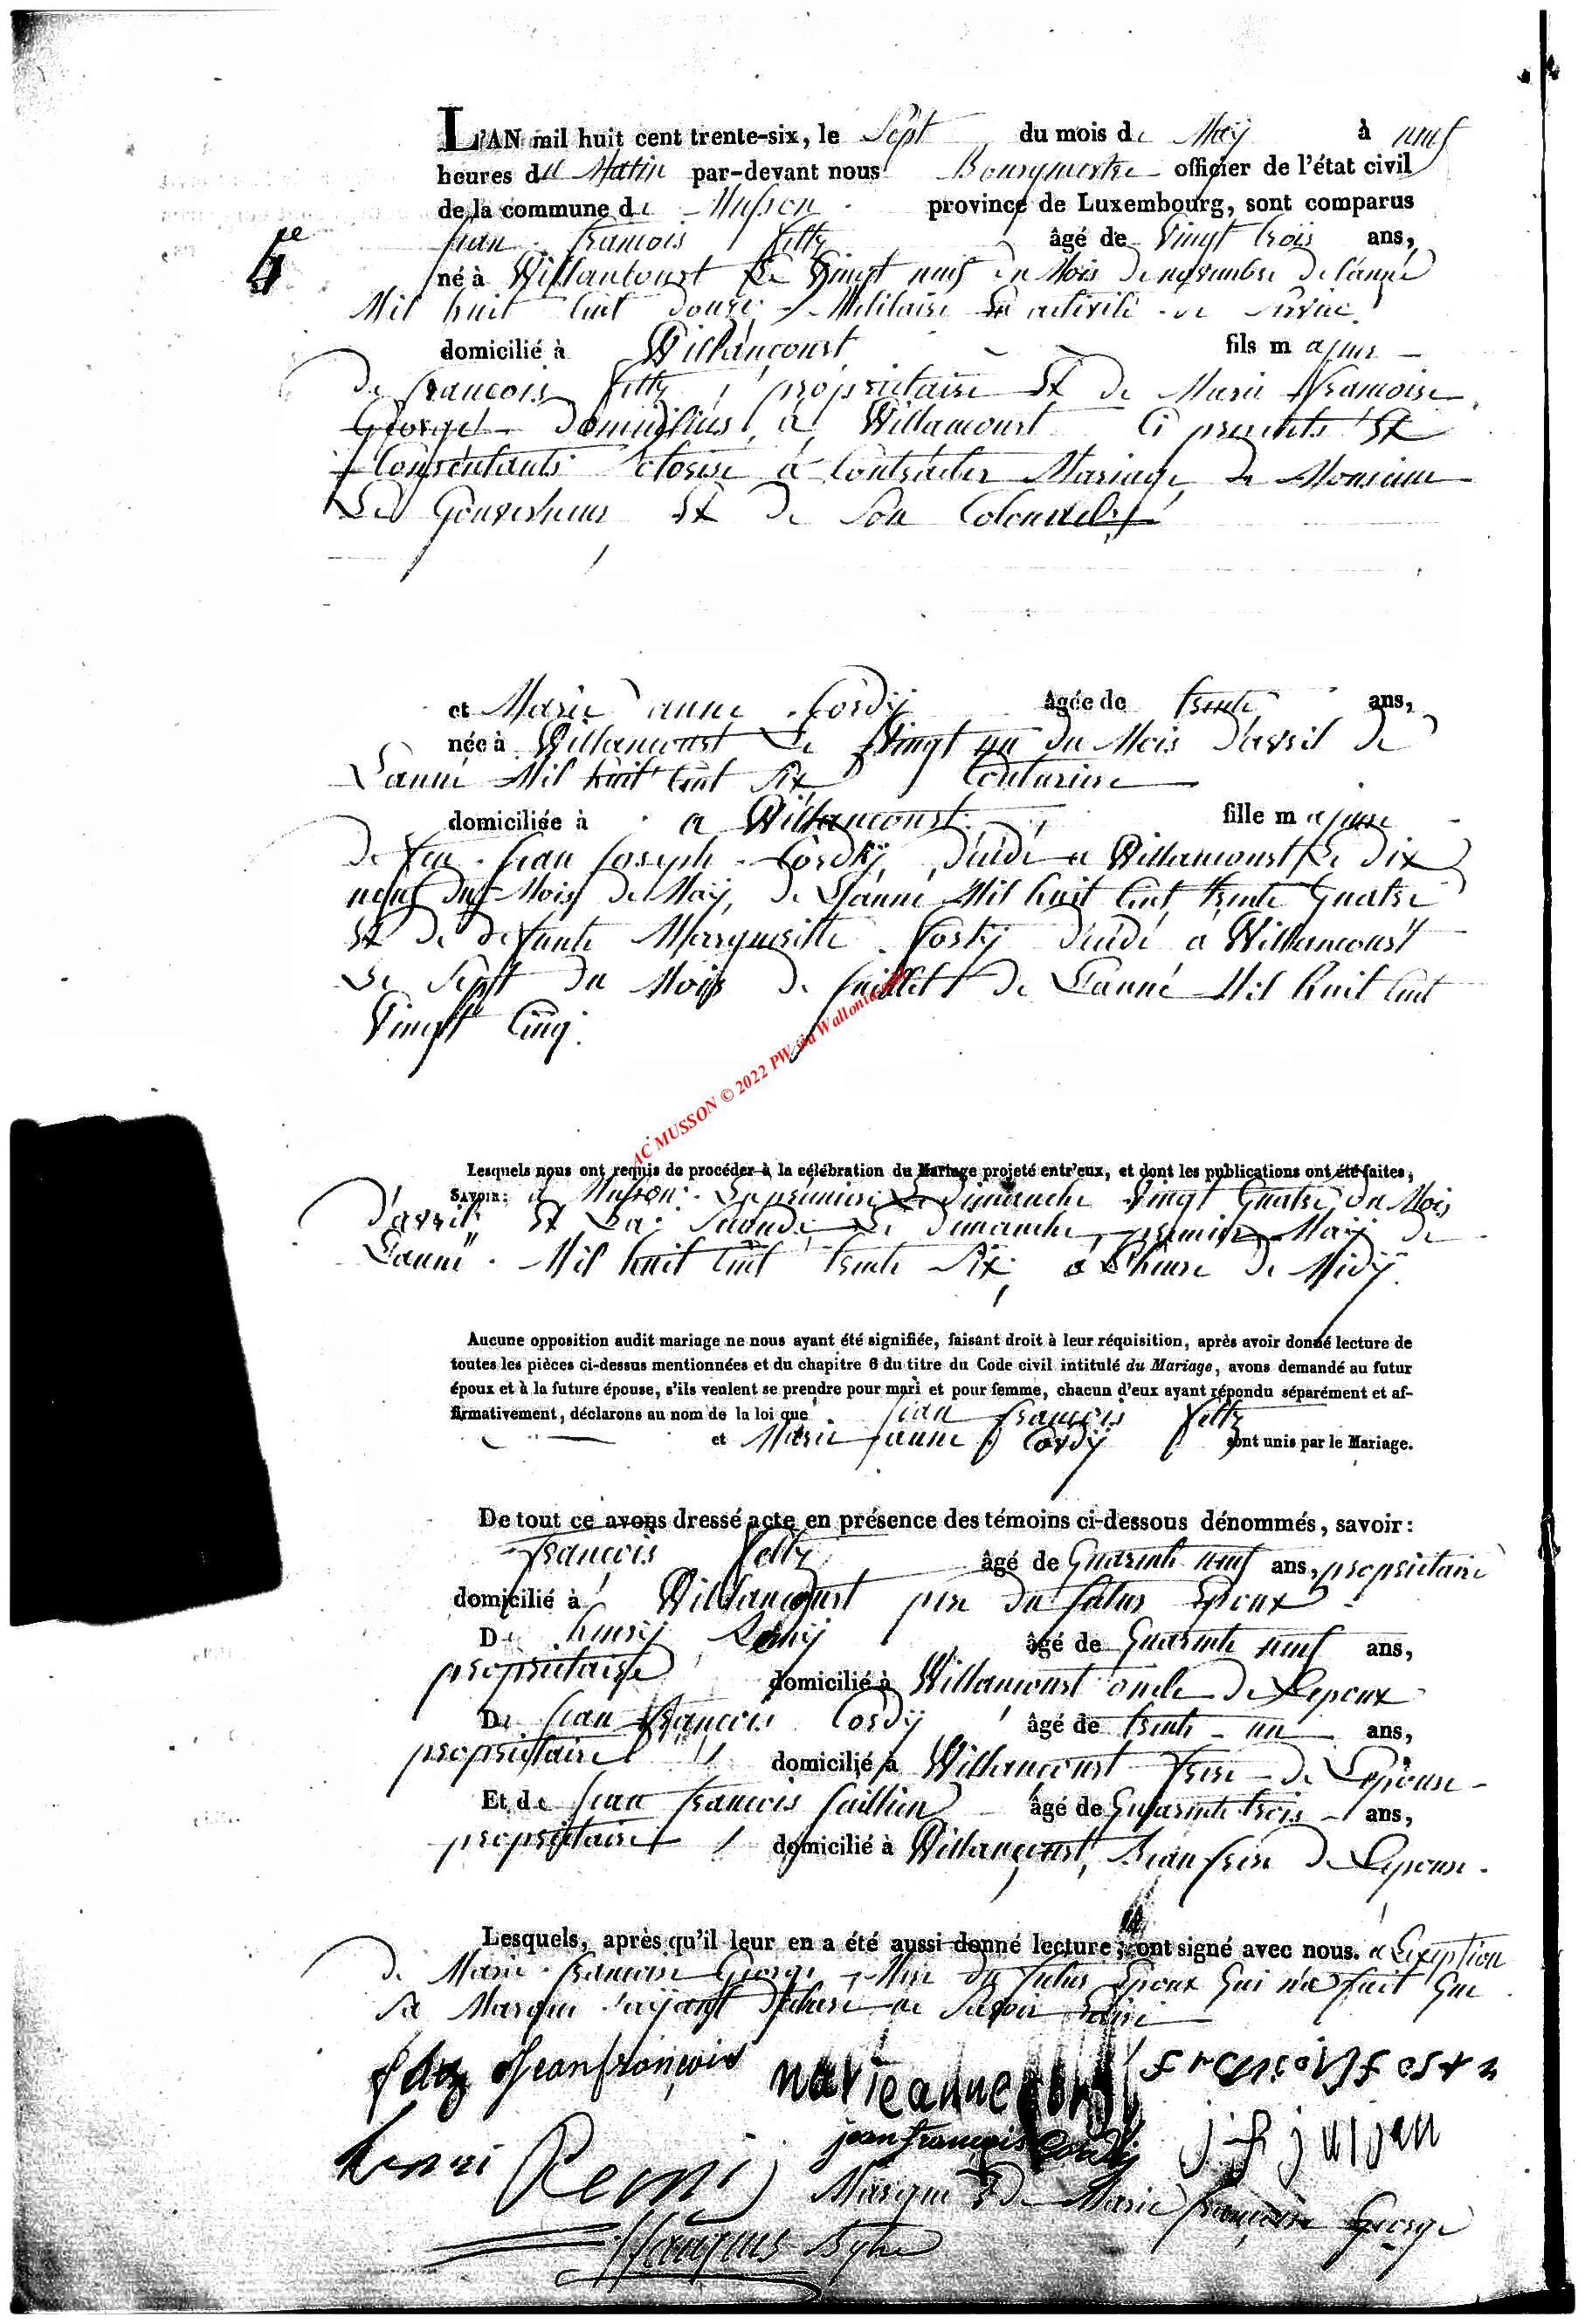 L'AN mil huit cent trente-six, le Sept du mois de Maÿ à neuf
heures du Matin par-devant nous Bourgmestre officier de l'état civil
de la commune de Musson province de Luxembourg, sont comparus
Jean francois âgé de Vingt trois ans,
né à Willancourt Le Vingt neuf du Mois de novembre de l'année
Mil huit Cent douze Militaire En activité de Service
domicilié à Willancourt fils majeur
de francois propriétaire Et de Marie francoise
George domiciliés à Willancourt Ci presents Et
Consentants à Contracter Mariage de Monsieur
Le Gouverneur Et de Son Colonnel
et Marie anne Cordÿ âgée de trente ans,
née à Willancourt Le Vingt un du Mois d'avril de
L'année Mil huit Cent Six Couturiere
domiciliée à a Willancourt fille majeure
de feu Jean Joseph Cordÿ, décédé a Willancourt Le dix
neuf du Mois de Maÿ, de L'année Mil huit Cent trente Quatre
Et de defunte Margueritte décédé a Willancourt
Le Sept du Mois de Juillet de L'année Mil huit Cent
Vingt Cinq.
AC MUSSON © 2022 PW via Wallonie
Lesquels nous ont requis de procéder à la célébration du Mariage projeté entr'eux, et dont les publications ont été faites,
SAVOIR: à Musson. La premiere Le dimanche Vingt Quatre du Mois
d'avril Et La Seconde Le dimanche premier Maÿ de
L'année Mil huit Cent trente Six, à L'heure de Midÿ.
Aucune opposition audit mariage ne nous ayant été signifiée, faisant droit à leur réquisition, après avoir donné lecture de
toutes les pièces ci-dessus mentionnées et du chapitre 6 du titre du Code civil intitulé du Mariage, avons demandé au futur
époux et à la future épouse, s'ils veulent se prendre pour mari et pour femme, chacun d'eux ayant répondu séparément et af-
firmativement, déclarons au nom de la loi que Jean francois
et Marie anne Cordÿ sont unis par le Mariage.
De tout ce avons dressé acte en présence des témoins ci-dessous dénommés, savoir:
françois âgé de Quarente neuf ans, propriétaire
domicilié à Willancourt pere du futur Epoux
De henrÿ Remÿ âgé de Quarente neuf ans,
propriétaire domicilié à Willancourt oncle de L'epoux
De Jean François Cordÿ âgé de trente un ans,
propriétaire domicilié à Willancourt frere de L'epouse
Et de Jean francois âgé de Quarente trois ans,
propriétaire domicilié à Willancourt, Beau frere de L'epouse.
Lesquels, après qu'il leur en a été aussi donné lecture, ont signé avec nous. a L'exeption
de Marie francoise George Mere du futur Epoux Qui n'a fait Que
Sa Marque
Jean françois marie anne
henri Remi jean francois Cordÿ
Marque de Marie francoise George